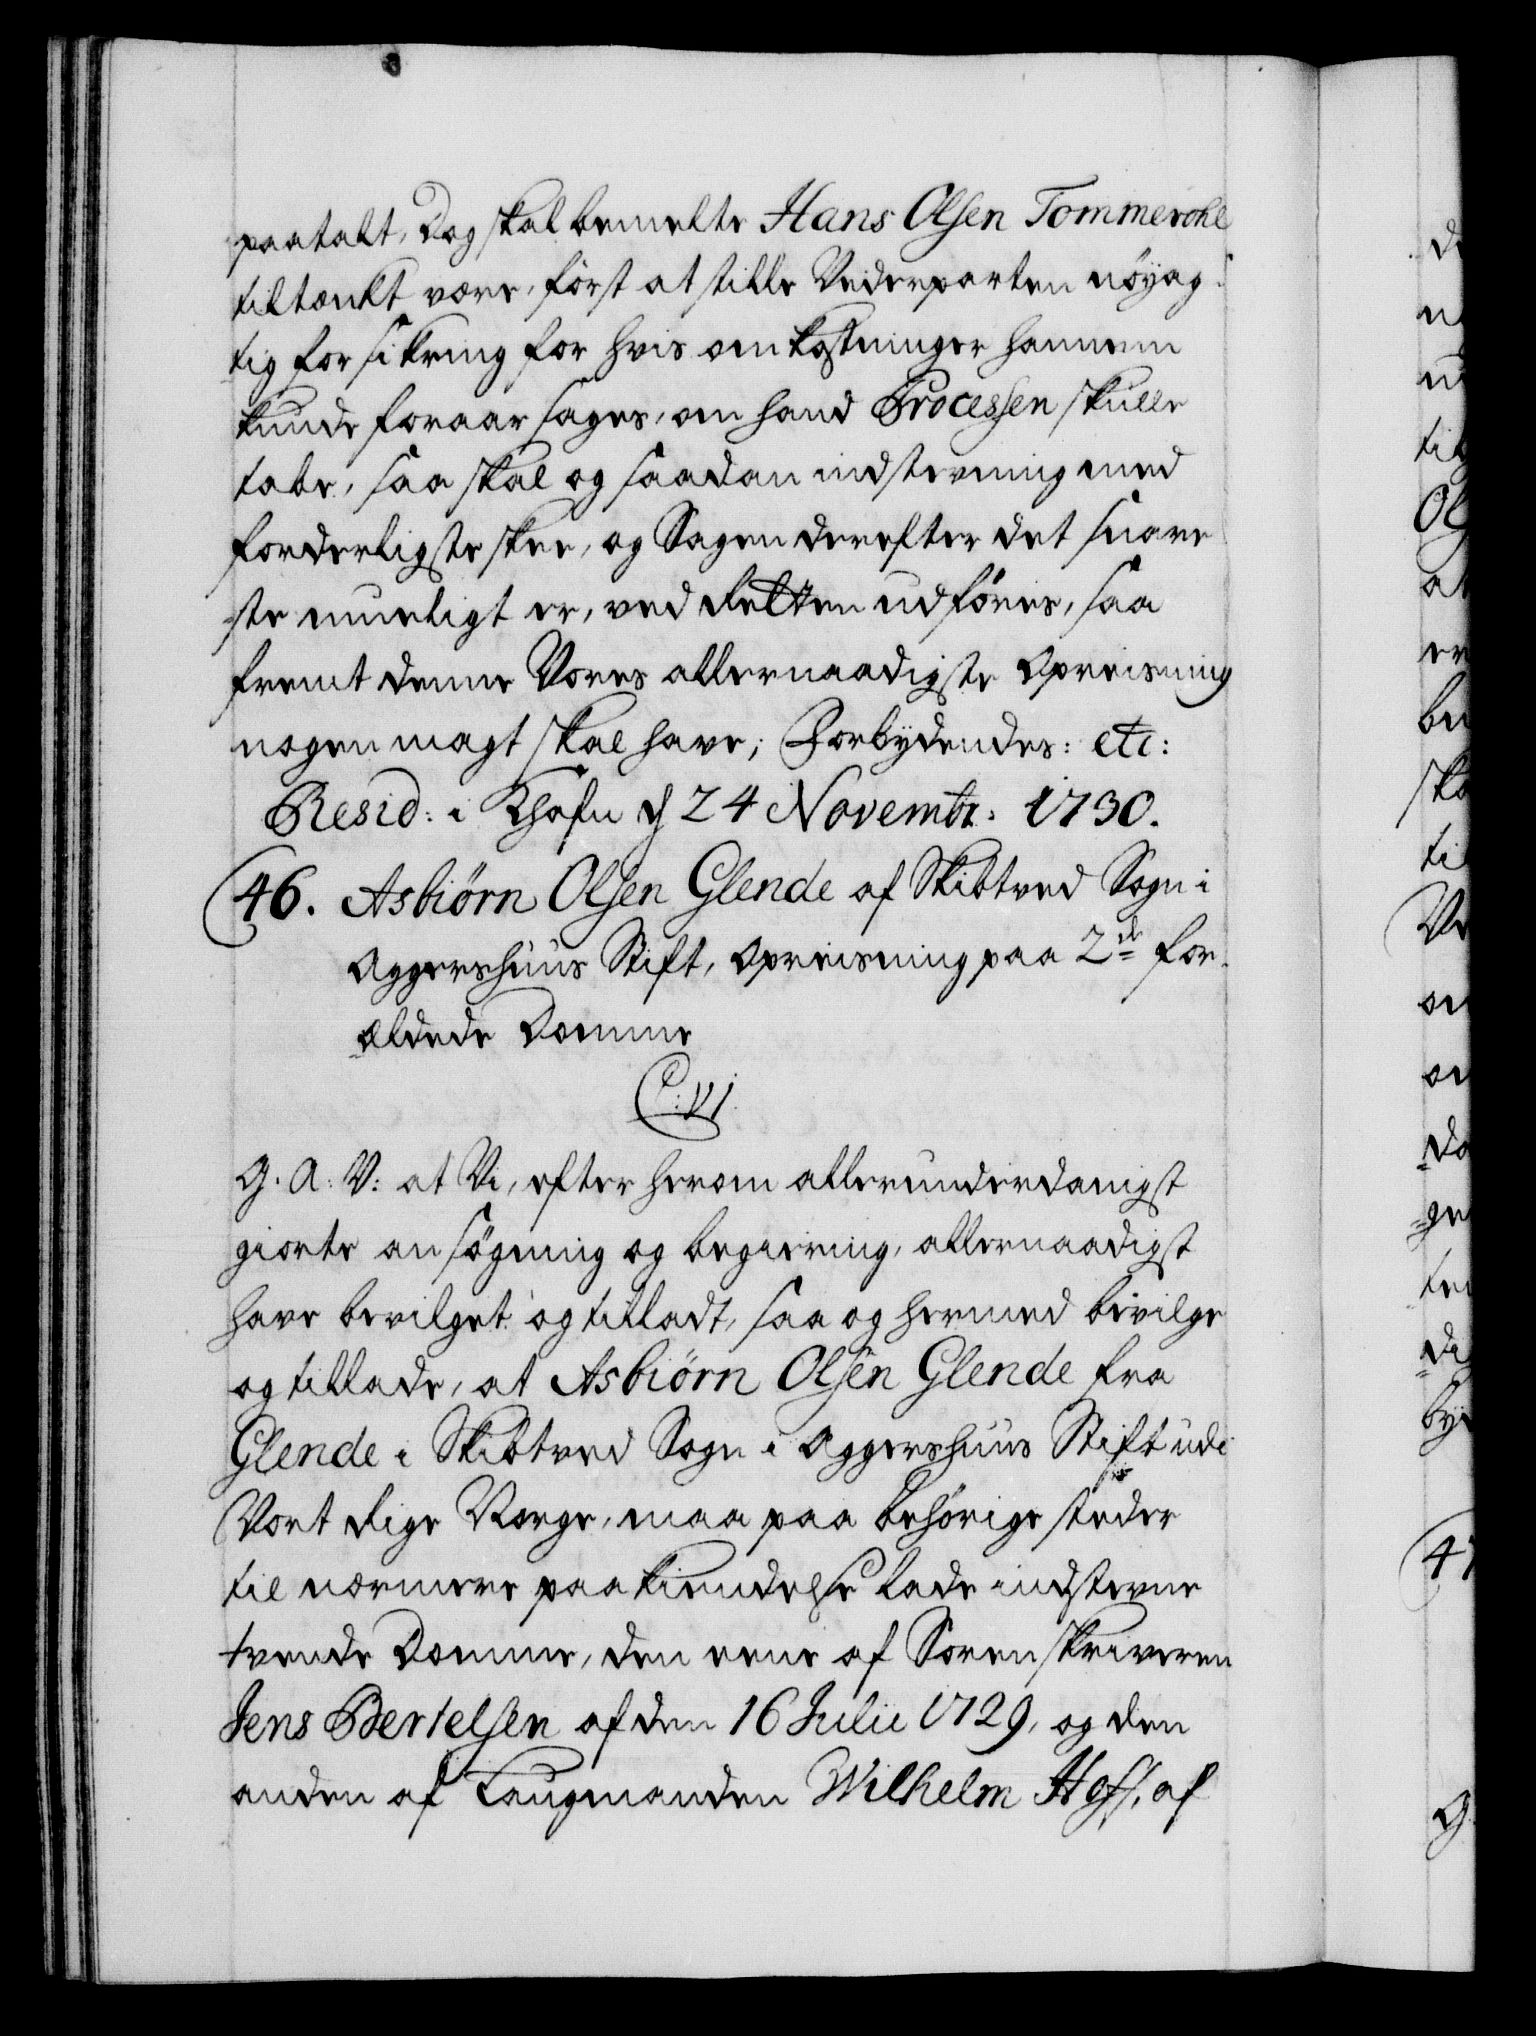 paatalt, Dog skal bemelte Hans Olsen Tommerohl
tiltænkt være, först at stille Vederparten nöyag:
tig forsikring for hvis omkostninger hannem
kunde foraarsages, om hand Processen skulle
tabe, saa skal og saadan indstevning med
forderligste skee, og Sagen derefter det snare
ste mueligt er, ved Retten udföres, saa
fremt denne Vores allernaadigste Opreisning
nogen magt skal have; Forbydendes: etc:
Resid: i Khafn d 24 Novembr: 1730.
46. Asbiörn Olsen Glende af Skibtved Sogn i
Aggershuus Stift, Opreisning paa 2de for-
ældede Domme
C: VI.
G. A: V: at Vi, efter herom allerunderdanigst
giorte ansögning og begiering, allernaadigst
have bevilget og tilladt, saa og hermed bevilge
og tillade, at Asbiörn Olsen Glende fra
Glende i Skibtved Sogn i Aggershuus Stift udi
Vort Rige Norge, maa paa behörige steder
til nærmere paakiendelse lade indstevne
tvende Domme, den eene af Sorenskriveren
Jens Bertelsen af den 16 Julii 1729, og den
anden af Laugmanden Wilhelm Hoff, af